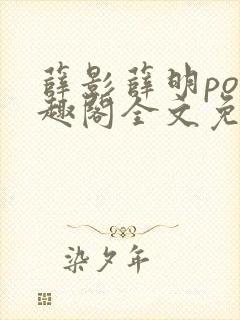 薛影薛明po
趣阁全文免
染夕年